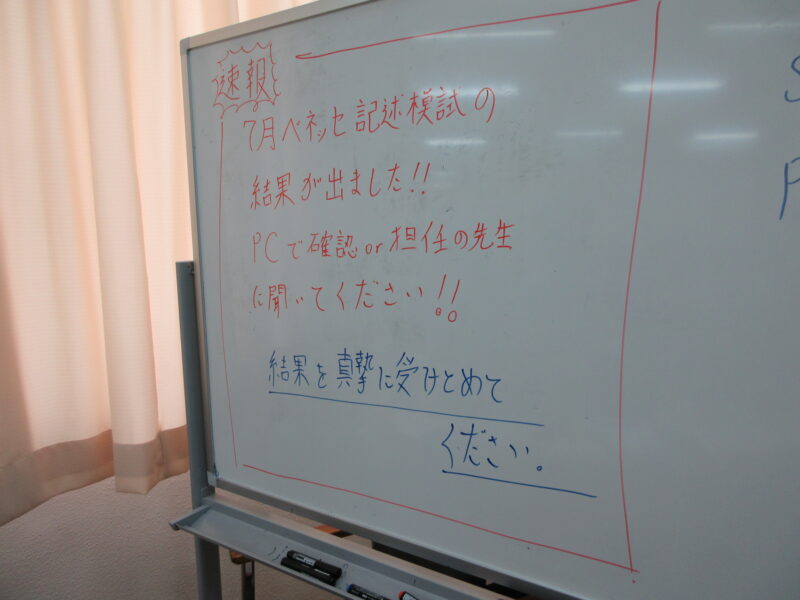 速報
7月ベネッセ記述模試の
結果が出ました!!
PCで確認or担任の先生
に聞いてください!!
結果を真摯に受けとめて
ください。
S
P